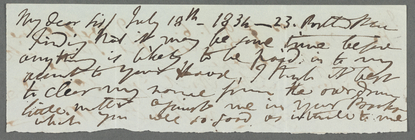 My dear Sir July 18th - 1834 - 23. Portl Place
finding that it may be some time before
anything is likely to be paid in to my
account to your House, I think it best
to clear my name from the overdrawn
little matter against me in your Books
which you were so good as intimate to me